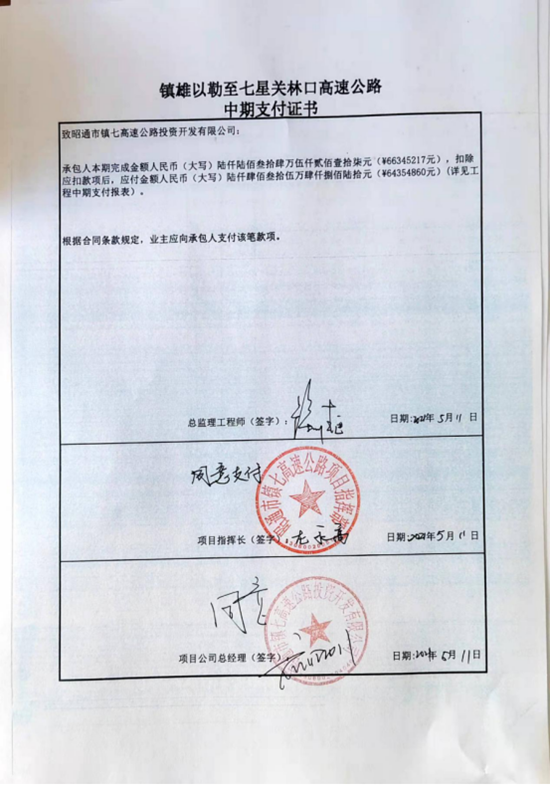 镇雄以勒至七星关林口高速公路
中期支付证书
致昭通市镇七高速公路投资开发有限公司：
承包人本期完成金额人民币（大写）陆仟陆佰叁拾肆万伍仟贰佰壹拾柒元（¥66345217元），扣除
应扣款项后，应付金额人民币（大写）陆仟肆佰叁拾伍万肆仟捌佰陆拾元（¥64354860元）（详见工
程中期支付报表）。
根据合同条款规定，业主应向承包人支付该笔款项。
总监理工程师（签字）： 日期:2021年5月11日
同意支付
昭通市镇七高速公路项目指挥部
项目指挥长（签字） 日期:2021年5月11日
同意
昭通市镇七高速公路投资开发有限公司
项目公司总经理（签字） 日期:2021年5月11日